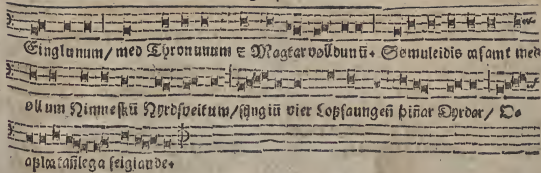 Einglunum/ med Thronunum ꛎ Magtarvolldunū. Sømuleidis asamt med
øllum Himneskū Hyrdsveitum/ syngiū vier Lofsaungeñ þiñar Dyrdar/ O-
aplatañlega seigiande.